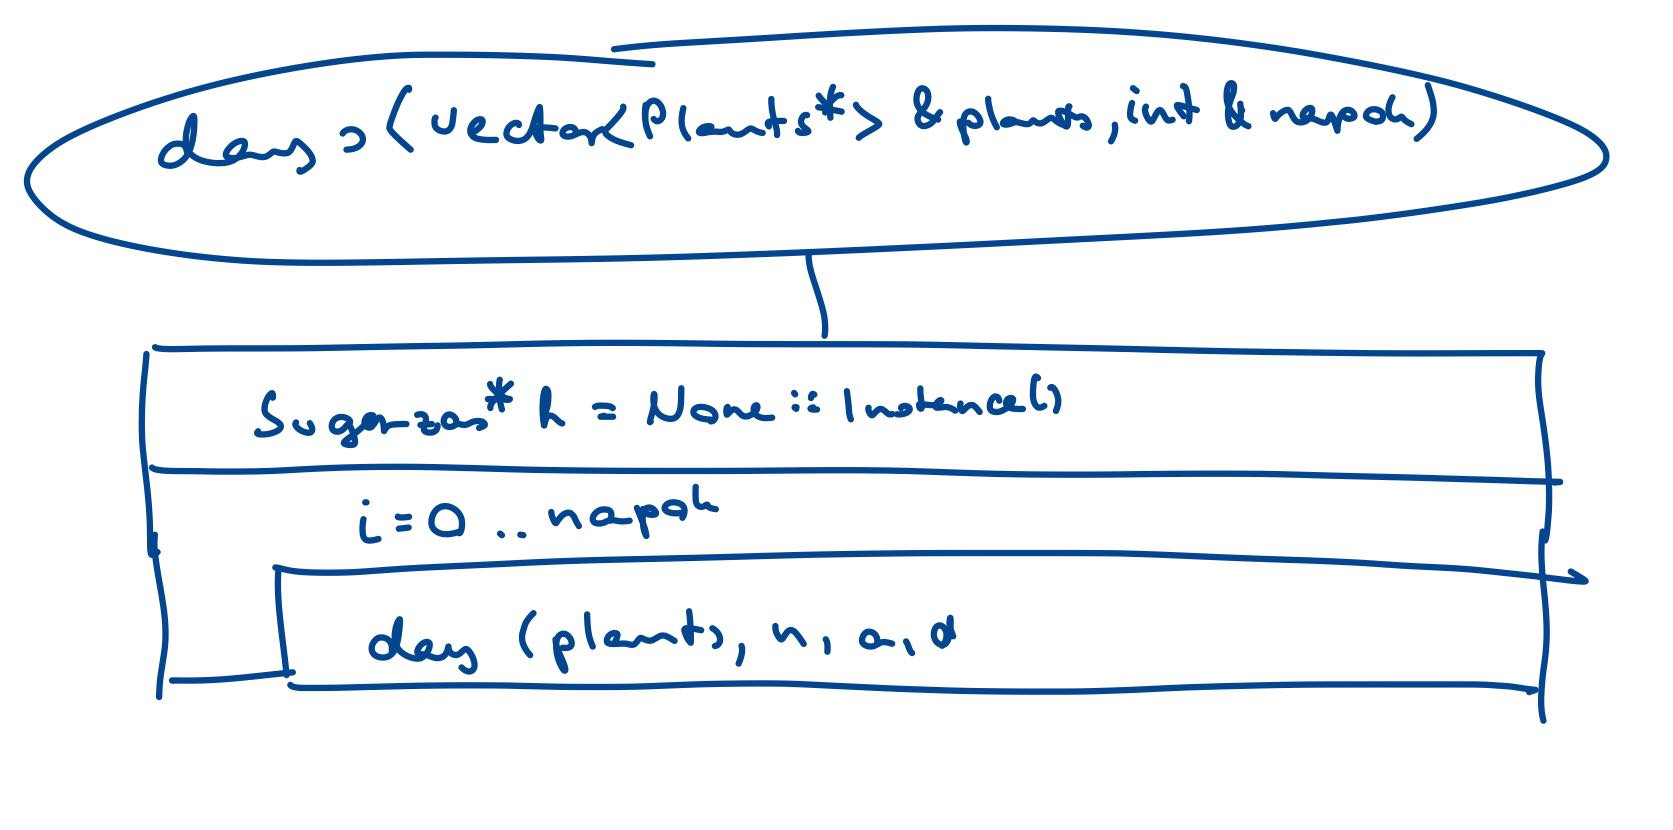 days (vector<Plants*> & plants, int & napok)
Sugarzas* h = None :: Instance()
i = 0 .. napok
day (plants, n, a, d